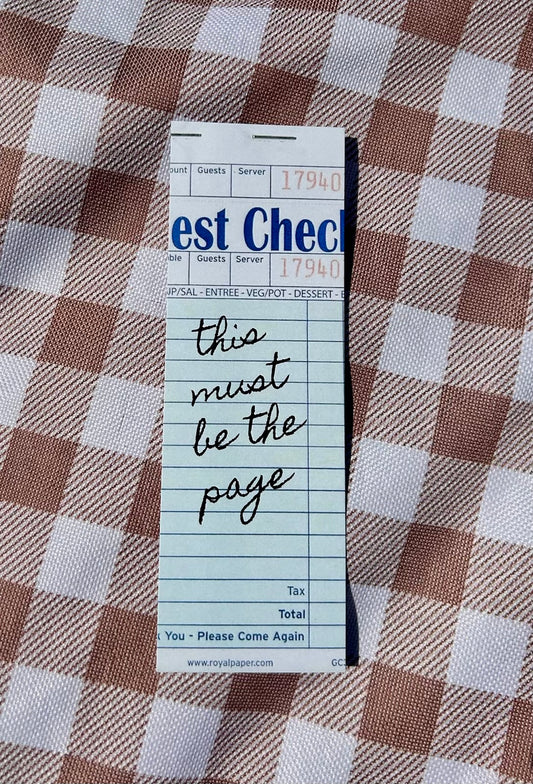 ount Guests Server 17940
est Chec
ble Guests Server 17940
UP/SAL - ENTREE - VEG/POT - DESSERT - B
this
must
be the
page
Tax
Total
k You - Please Come Again
www.royalpaper.com GC